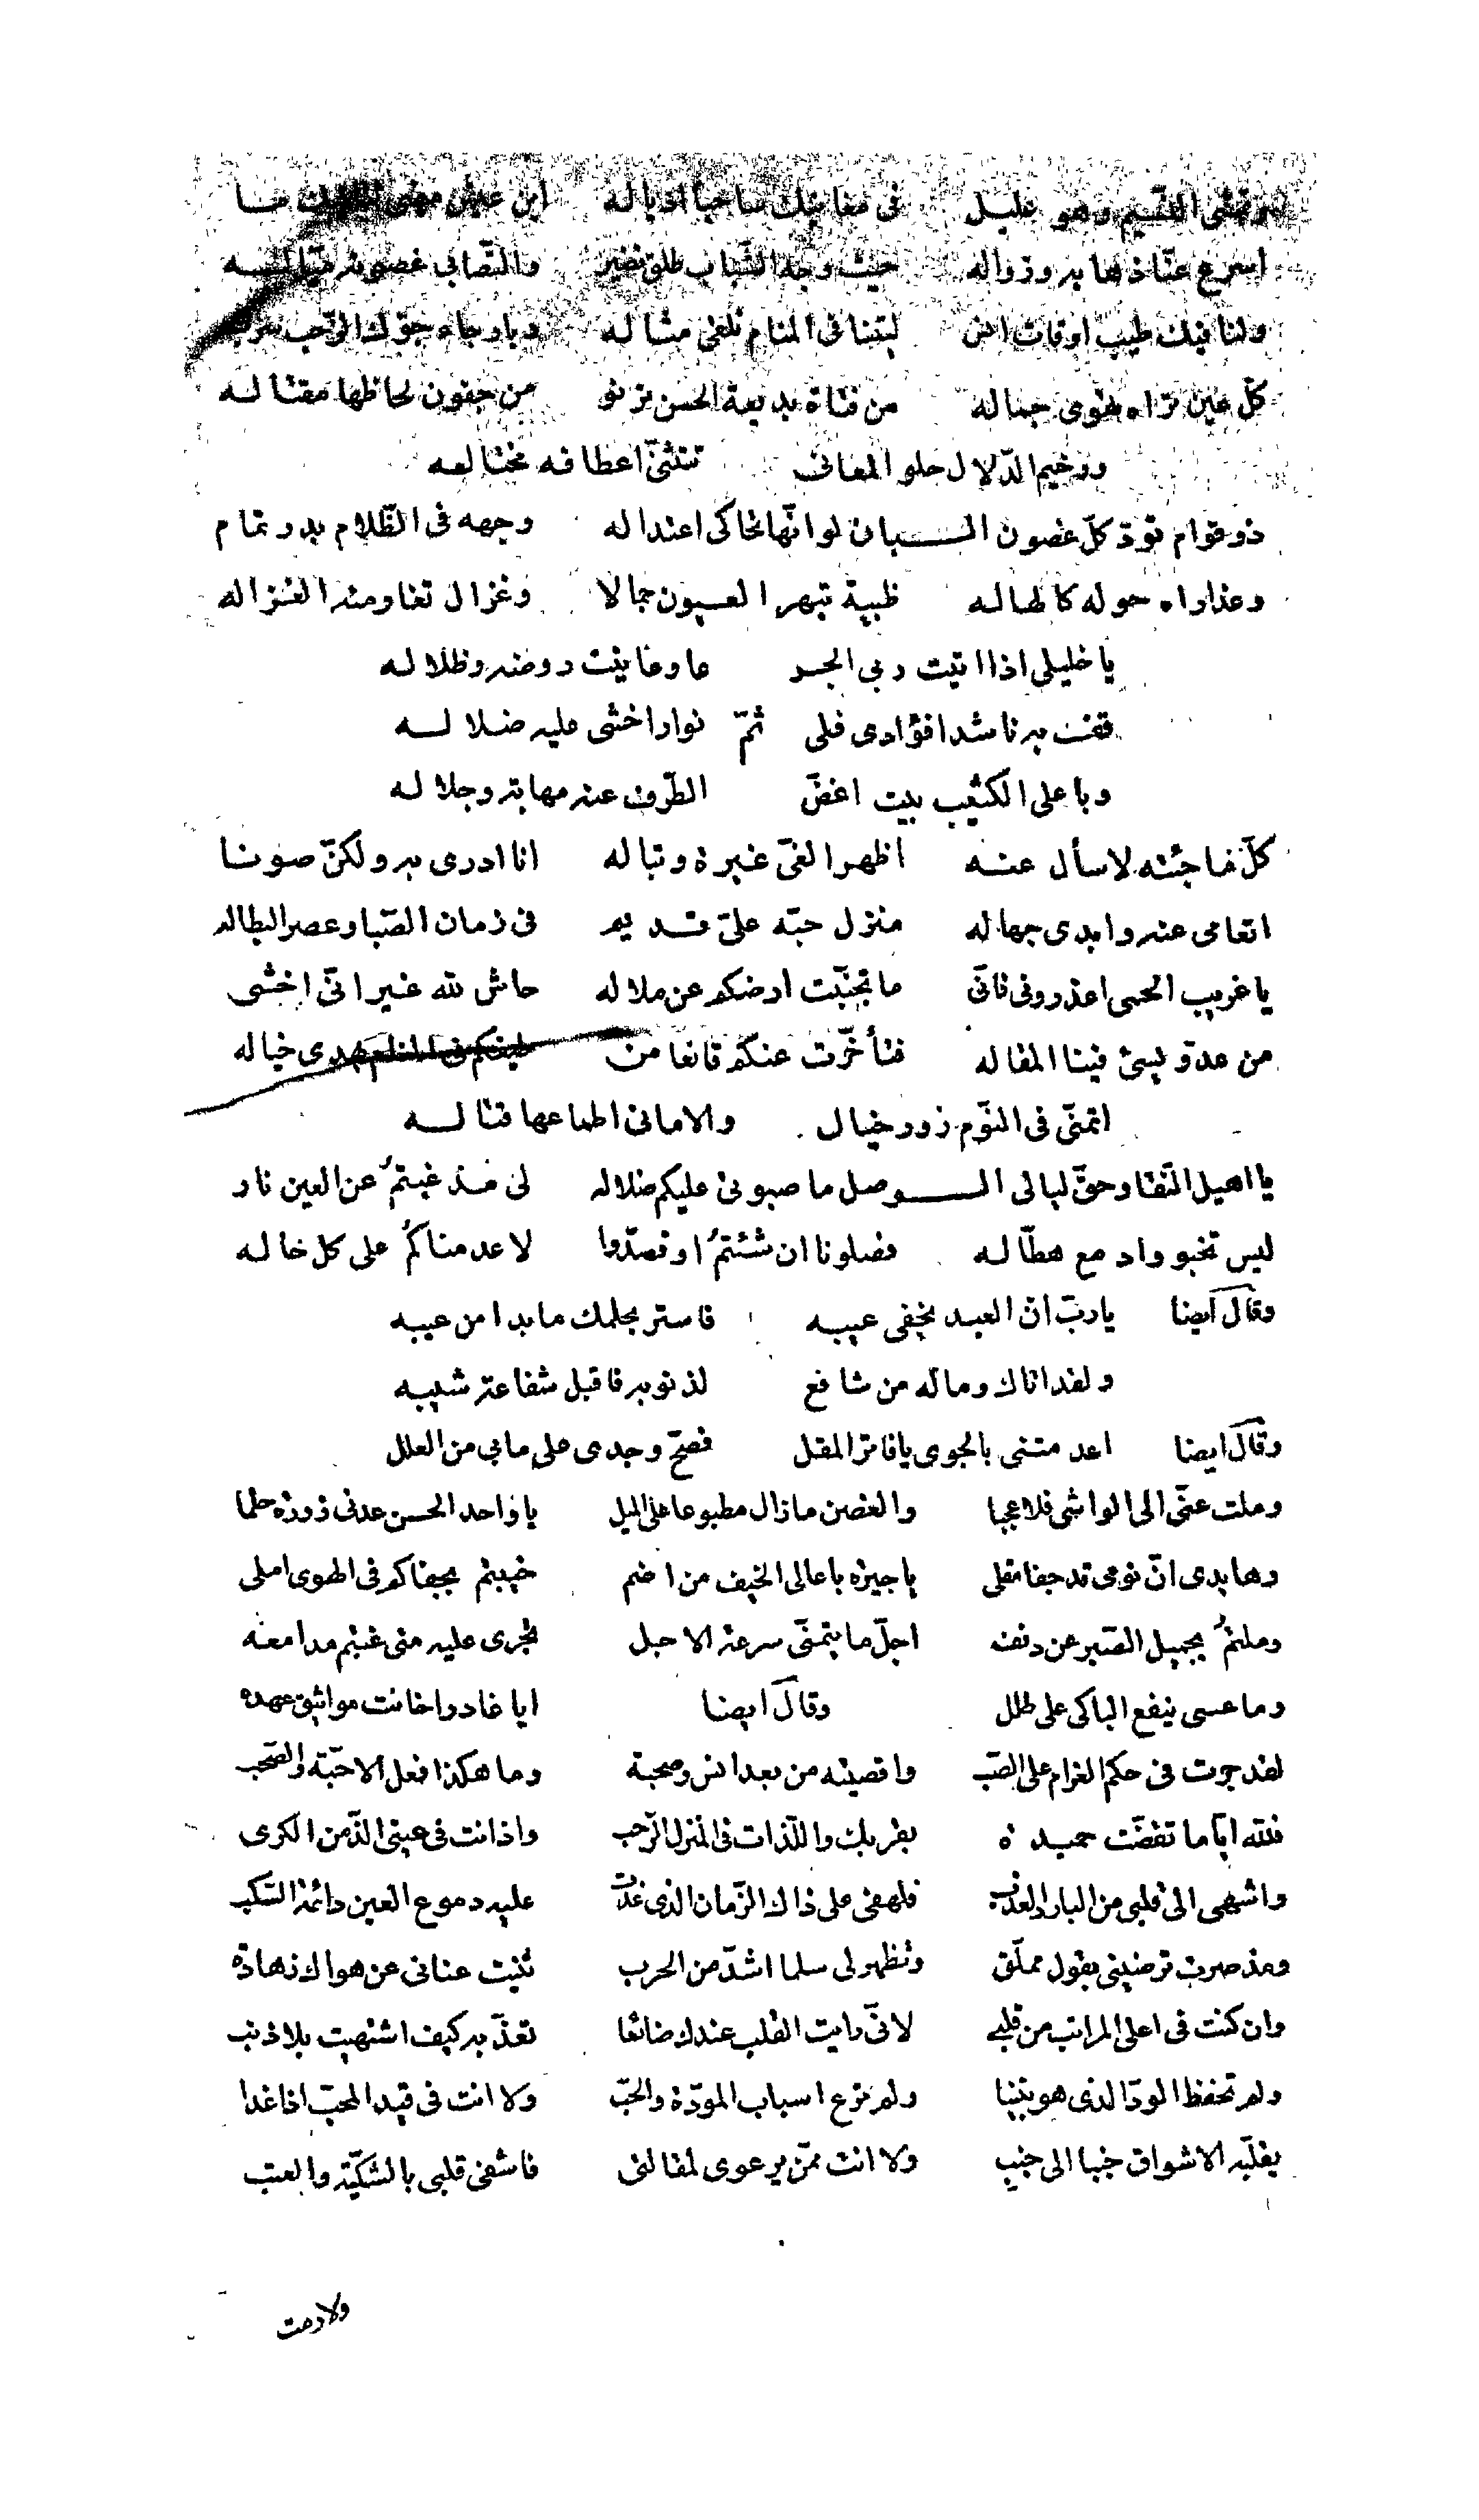 وتمشى النسيم وهو عليل في مغانيك ساحبا اذياله اين عيش مضى لنا فيك ما
اسرع عنّا ذهابه وزواله حيث وجه الشّباب طلق نضير والتّصابي غصونه ميّاله
ولنا فيك طيب اوقات انس ليتنا في المنام نلقى مثاله وبارجاء جوّك الرّحب سرب
كلّ عين تراه تهوى جماله من فتاة بديعة الحسن ترنو من جفون لحاظها مقتاله
ورخيم الدّلال حلو المعاني تنثنّى اعطافه مختاله
ذو قوام تودّ كلّ غصون البان لو انّها تحاكى اعتداله وجهه في الظّلام بدر تمام
وعذاراه حوله كالهاله ظبية تبهر العيون جمالا وغزال تغار منه الغزاله
يا خليلي اذا اتيت ربى الجر عا وعاينت روضه وظلاله
قف به ناشدا فؤادى فلى ثمّ نوار اخشى عليه ضلاله
وباعلى الكثيب بيت اغضّ الطّرف عنه مهابة وجلاله
كلّ ما جئته لاسأل عنه اظهر الغيّ غيرة وتباله انا ادرى به ولكنّ صونا
اتعامى عنه وابدى جهاله منزل حبّه علىّ قديم فى زمان الصّبا وعصر البطاله
يا عريب الحمى اعذرونى فانّى ما تجنّبت ارضكم عن ملاله حاش لله غير انّى اخشى
من عدوّ يسئ فينا المقاله فتأخّرت عنكم قانعا من طيفكم فى المنام يهدى خياله
اتمنّى فى النّوم زور خيال والامانى اطماعها قتاله
يا اهيل النّقا وحقّ ليالى الوصل ما صبوتى عليكم ضلاله لى مذ غبتمُ عن العين نار
ليس تخبو وادمع هطّاله فصلونا ان شئتمُ او فصدّوا لا عدمناكمُ على كل حاله
وقال ايضا يا ربّ انّ العبد يخفى عيبه فاستر بحلمك ما بدا من عيبه
ولقد اتاك وماله من شافع لذنوبه فاقبل شفاعة شيبه
وقال ايضا اعدمتنى بالجوى يا فاتر المقل فصحّ وجدى على ما بى من العلل
وملت عنّى الى الواشى فلا عجبا والغصن ما زال مطبوعا على الميل يا واحد الحسن عدنى زورة حلما
وها يدى انّ نومى قد جفا مقلى يا جيرة باعالى الخيف من اضم خيبتم بجفاكم فى الهوى املى
وملتمُ بجميل الصّبر عن دنف اجلّ ما يتمنّى سرعة الاجل تجرى عليه متى غبتم مدامعه
وما عسى ينفع الباكى على طلل وقال ايضا ايا غادرا خانت مواثيق عهده
لقد جرت فى حكم الغرام على الصّب واقصيته من بعد انس وصحبة وما هكذا فعل الاحبّة والصّحب
فلله ايّاما تقضّت حميدة بقربك واللّذات فى المنزل الرّحب واذ انت فى عينى الذّ من الكرى
واشهى الى قلبى من البارد العذب فلهفى على ذاك الزّمان الذى غدت عليه دموع العين دائمة السّكب
ومذ صرت ترضينى بقول مملّق وتظهر لى سلما اشدّ من الحرب ثنيت عنانى عن هواك زهادة
وان كنت فى اعلى المراتب من قلبى لانّى رايت القلب عندك ضائعا تعذّبه كيف اشتهيت بلا ذنب
ولم تحفظ الودّ الذى هو بيننا ولم ترع اسباب المودّة والحبّ ولا انت فى قيد المحبّ اذا غدا
يقلّبه الاشواق جنبا الى جنب ولا انت ممّن يرعوى لمقالتى فاشفى قلبى بالشّكيّة والعتب
ولا رمت